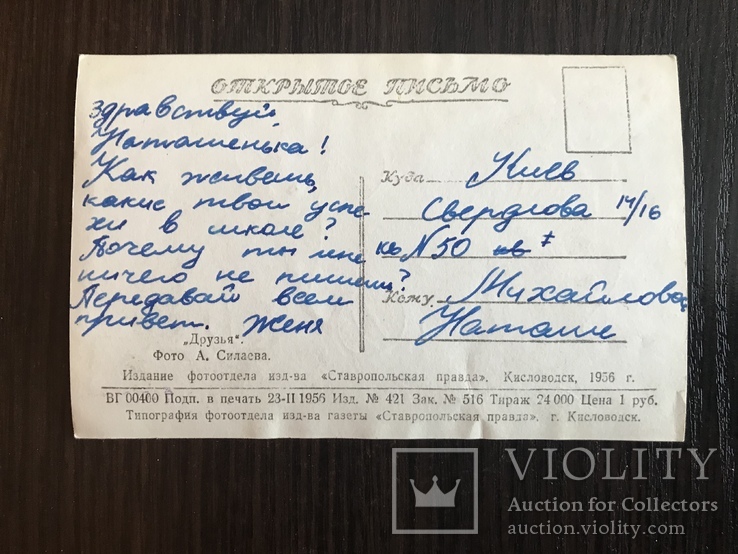 ОТКРЫТОЕ ПИСЬМО
Здравствуй,
Наташенька!
Как живешь,
какие твои успе-
хи в школе?
Почему ты мне
ничего не пишешь?
Передавай всем
привет. Женя
Куда Киев
Свердлова 14/16
кв N 50
Кому Михайловой
Наташе
„Друзья“.
Фото А. Силаева.
Издание фотоотдела изд-ва «Ставропольская правда». Кисловодск, 1956 г.
ВГ 00400 Подп. в печать 23-II 1956 Изд. № 421 Зак. № 516 Тираж 24 000 Цена 1 руб.
Типография фотоотдела изд-ва газеты «Ставропольская правда». г. Кисловодск.
VIOLITY
Auction for Collectors
auction.violity.com